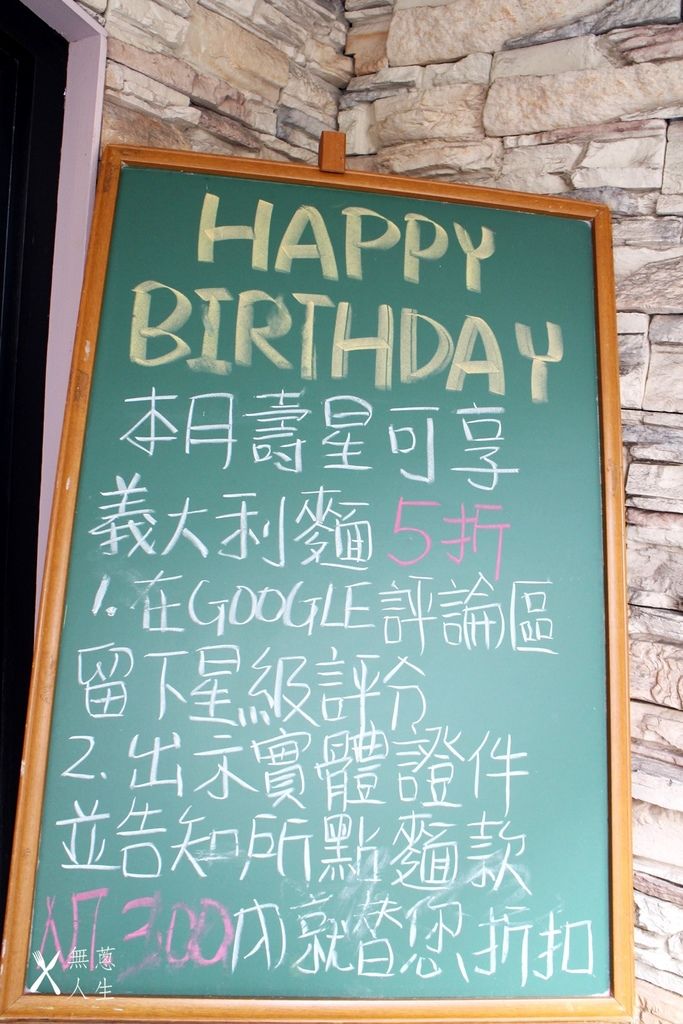 HAPPY
BIRTHDAY
本月壽星可享
義大利麵 5折
1. 在GOOGLE評論區
留下星級評分
2. 出示實體證件
並告知所點麵款
NT 300內就替您折扣
無蔥
人生